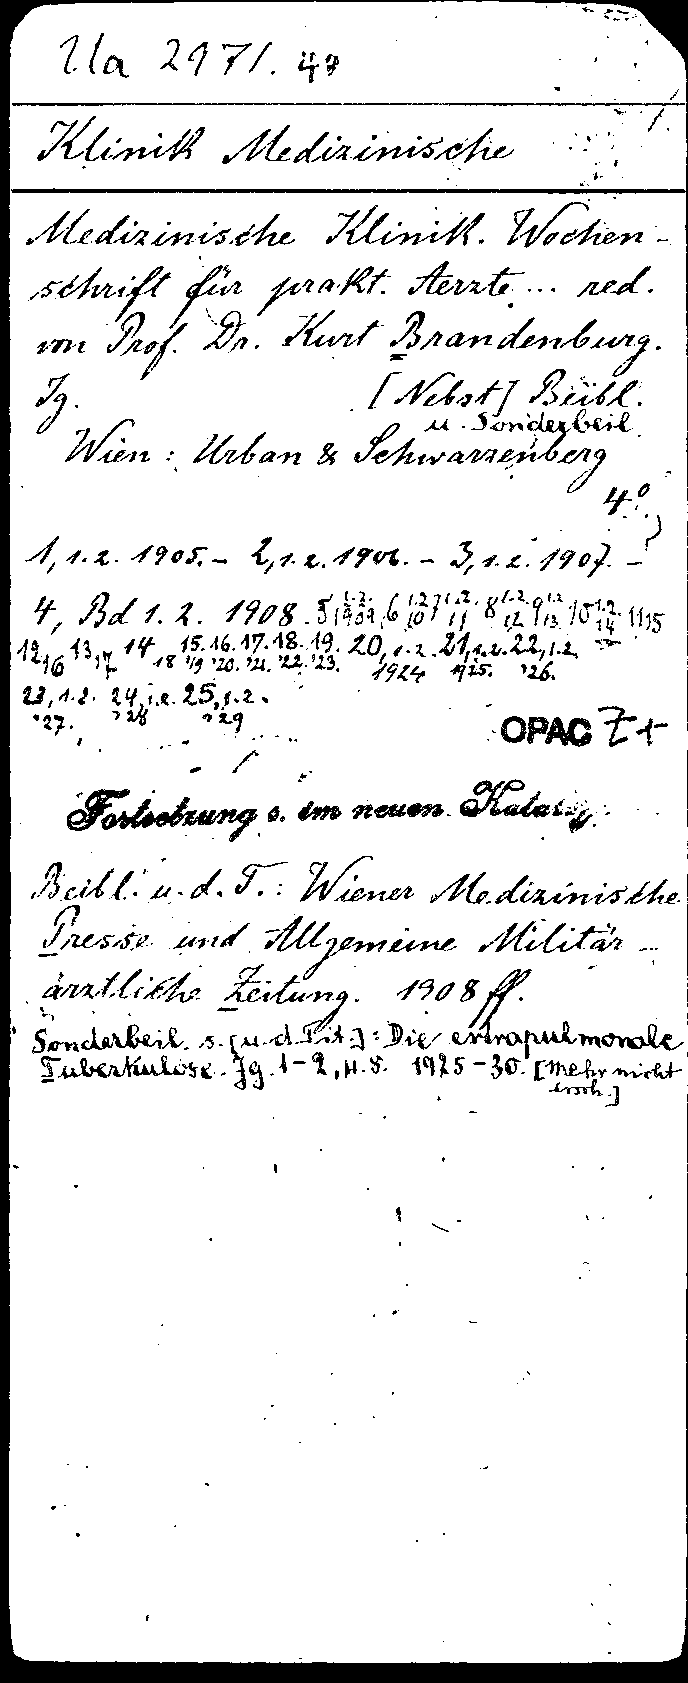 Ua 2971. 4°
Klinik Medizinische
Medizinische Klinik. Wochen-
schrift für prakt. Aerzte ... red.
von Prof. Dr. Kurt Brandenburg.
Jg. [Nebst] Beibl.
u. Sonderbeil.
Wien : Urban & Schwarzenberg
4°.
1,1.2. 1905. - 2,1.2. 1906. - 3,1.2. 1907. -
4, Bd 1. 2. 1908. 5,1.2. 1909, 6 1.2. 10 7 1.2. 11 8 1.2. 12 9 1.2. 13 10 1.2. 14 11 15
12, 16 13, 17 14 18 15. '19 16. '20. 17. '21. 18. '22. 19. '23. 20,1.2. 1924 21,1.2. 1925. 22,1.2. '26.
23,1.2. '27. 24,1.2. '28 25,1.2. '29
OPAC Z+
Fortsetzung s. im neuen Katalog
Beibl. u. d. T. : Wiener Medizinische
Presse und Allgemeine Militär-
ärztliche Zeitung. 1908 ff.
Sonderbeil. s. [u. d. Tit.] : Die extrapulmonale
Tuberkulose. Jg. 1-2, H. 5. 1925-30. [mehr nicht
ersch.]